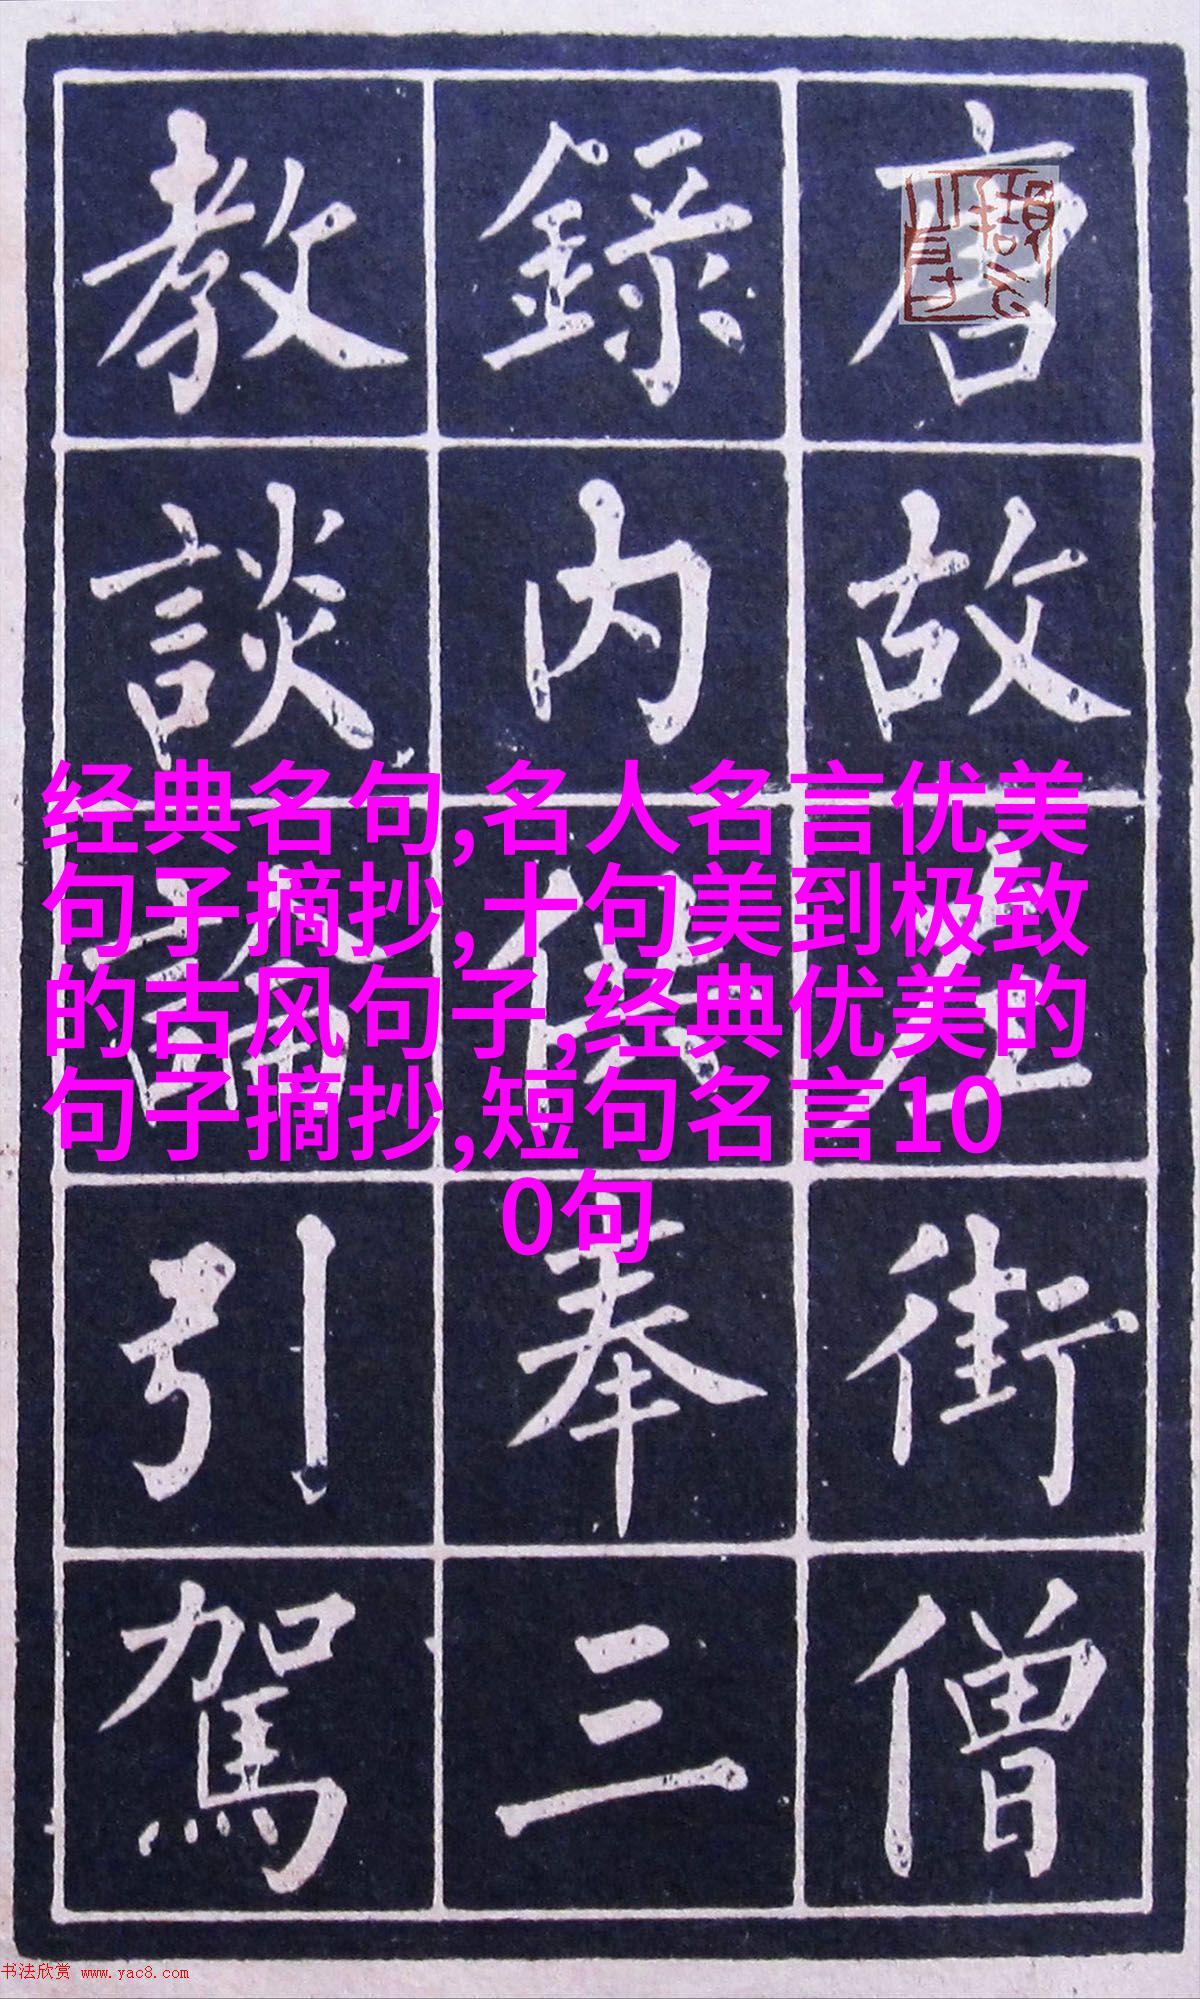 唐故左街僧
錄內供奉三
教談論引駕
经典名句,名人名言优美
句子摘抄,十句美到极致
的古风句子,经典优美的
句子摘抄,短句名言10
0句
书法欣赏 www.yac8.com